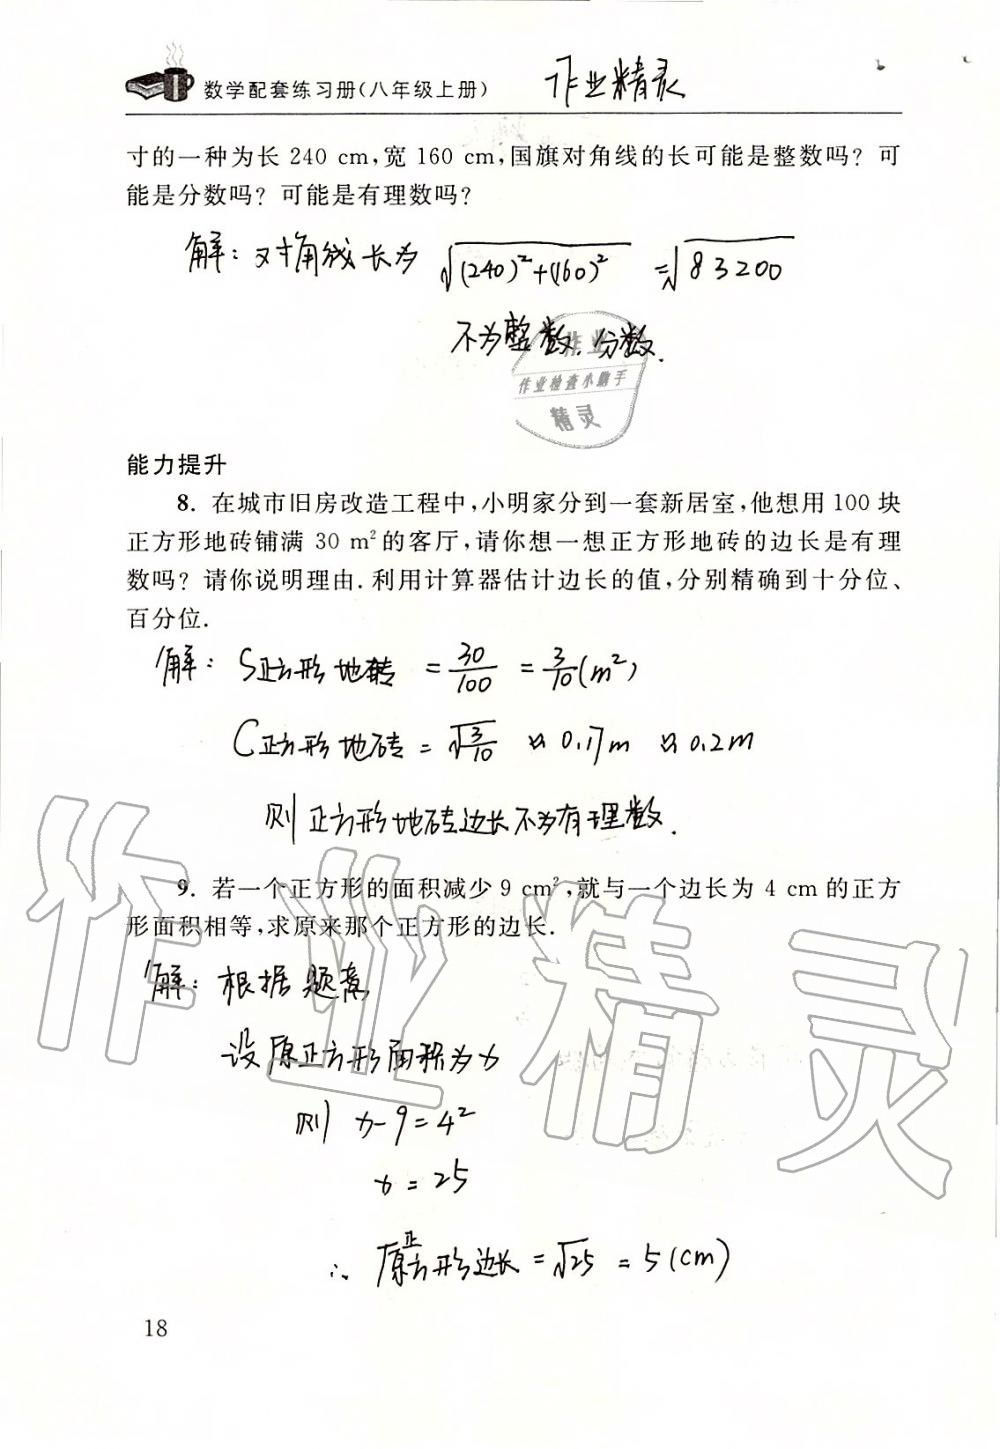 数学配套练习册(八年级上册) 作业精灵
寸的一种为长 240 cm,宽 160 cm,国旗对角线的长可能是整数吗? 可
能是分数吗? 可能是有理数吗?
解:对角线长为 √((240)²+(160)²) =√83200
不为整数.分数.
作业
作业检查小助手
精灵
能力提升
8. 在城市旧房改造工程中,小明家分到一套新居室,他想用 100 块
正方形地砖铺满 30 m²的客厅,请你想一想正方形地砖的边长是有理
数吗? 请你说明理由.利用计算器估计边长的值,分别精确到十分位、
百分位.
解: S正方形地砖 = 30/100 = 3/10(m²)
C正方形地砖 = √3/10 ≈ 0.17m ≈ 0.2m
则正方形地砖边长不为有理数.
9. 若一个正方形的面积减少 9 cm²,就与一个边长为 4 cm 的正方
形面积相等,求原来那个正方形的边长.
解: 根据题意
设原正方形面积为x
则 x-9=4²
x=25
∴ 原正方形边长=√25 = 5(cm)
作业精灵
18